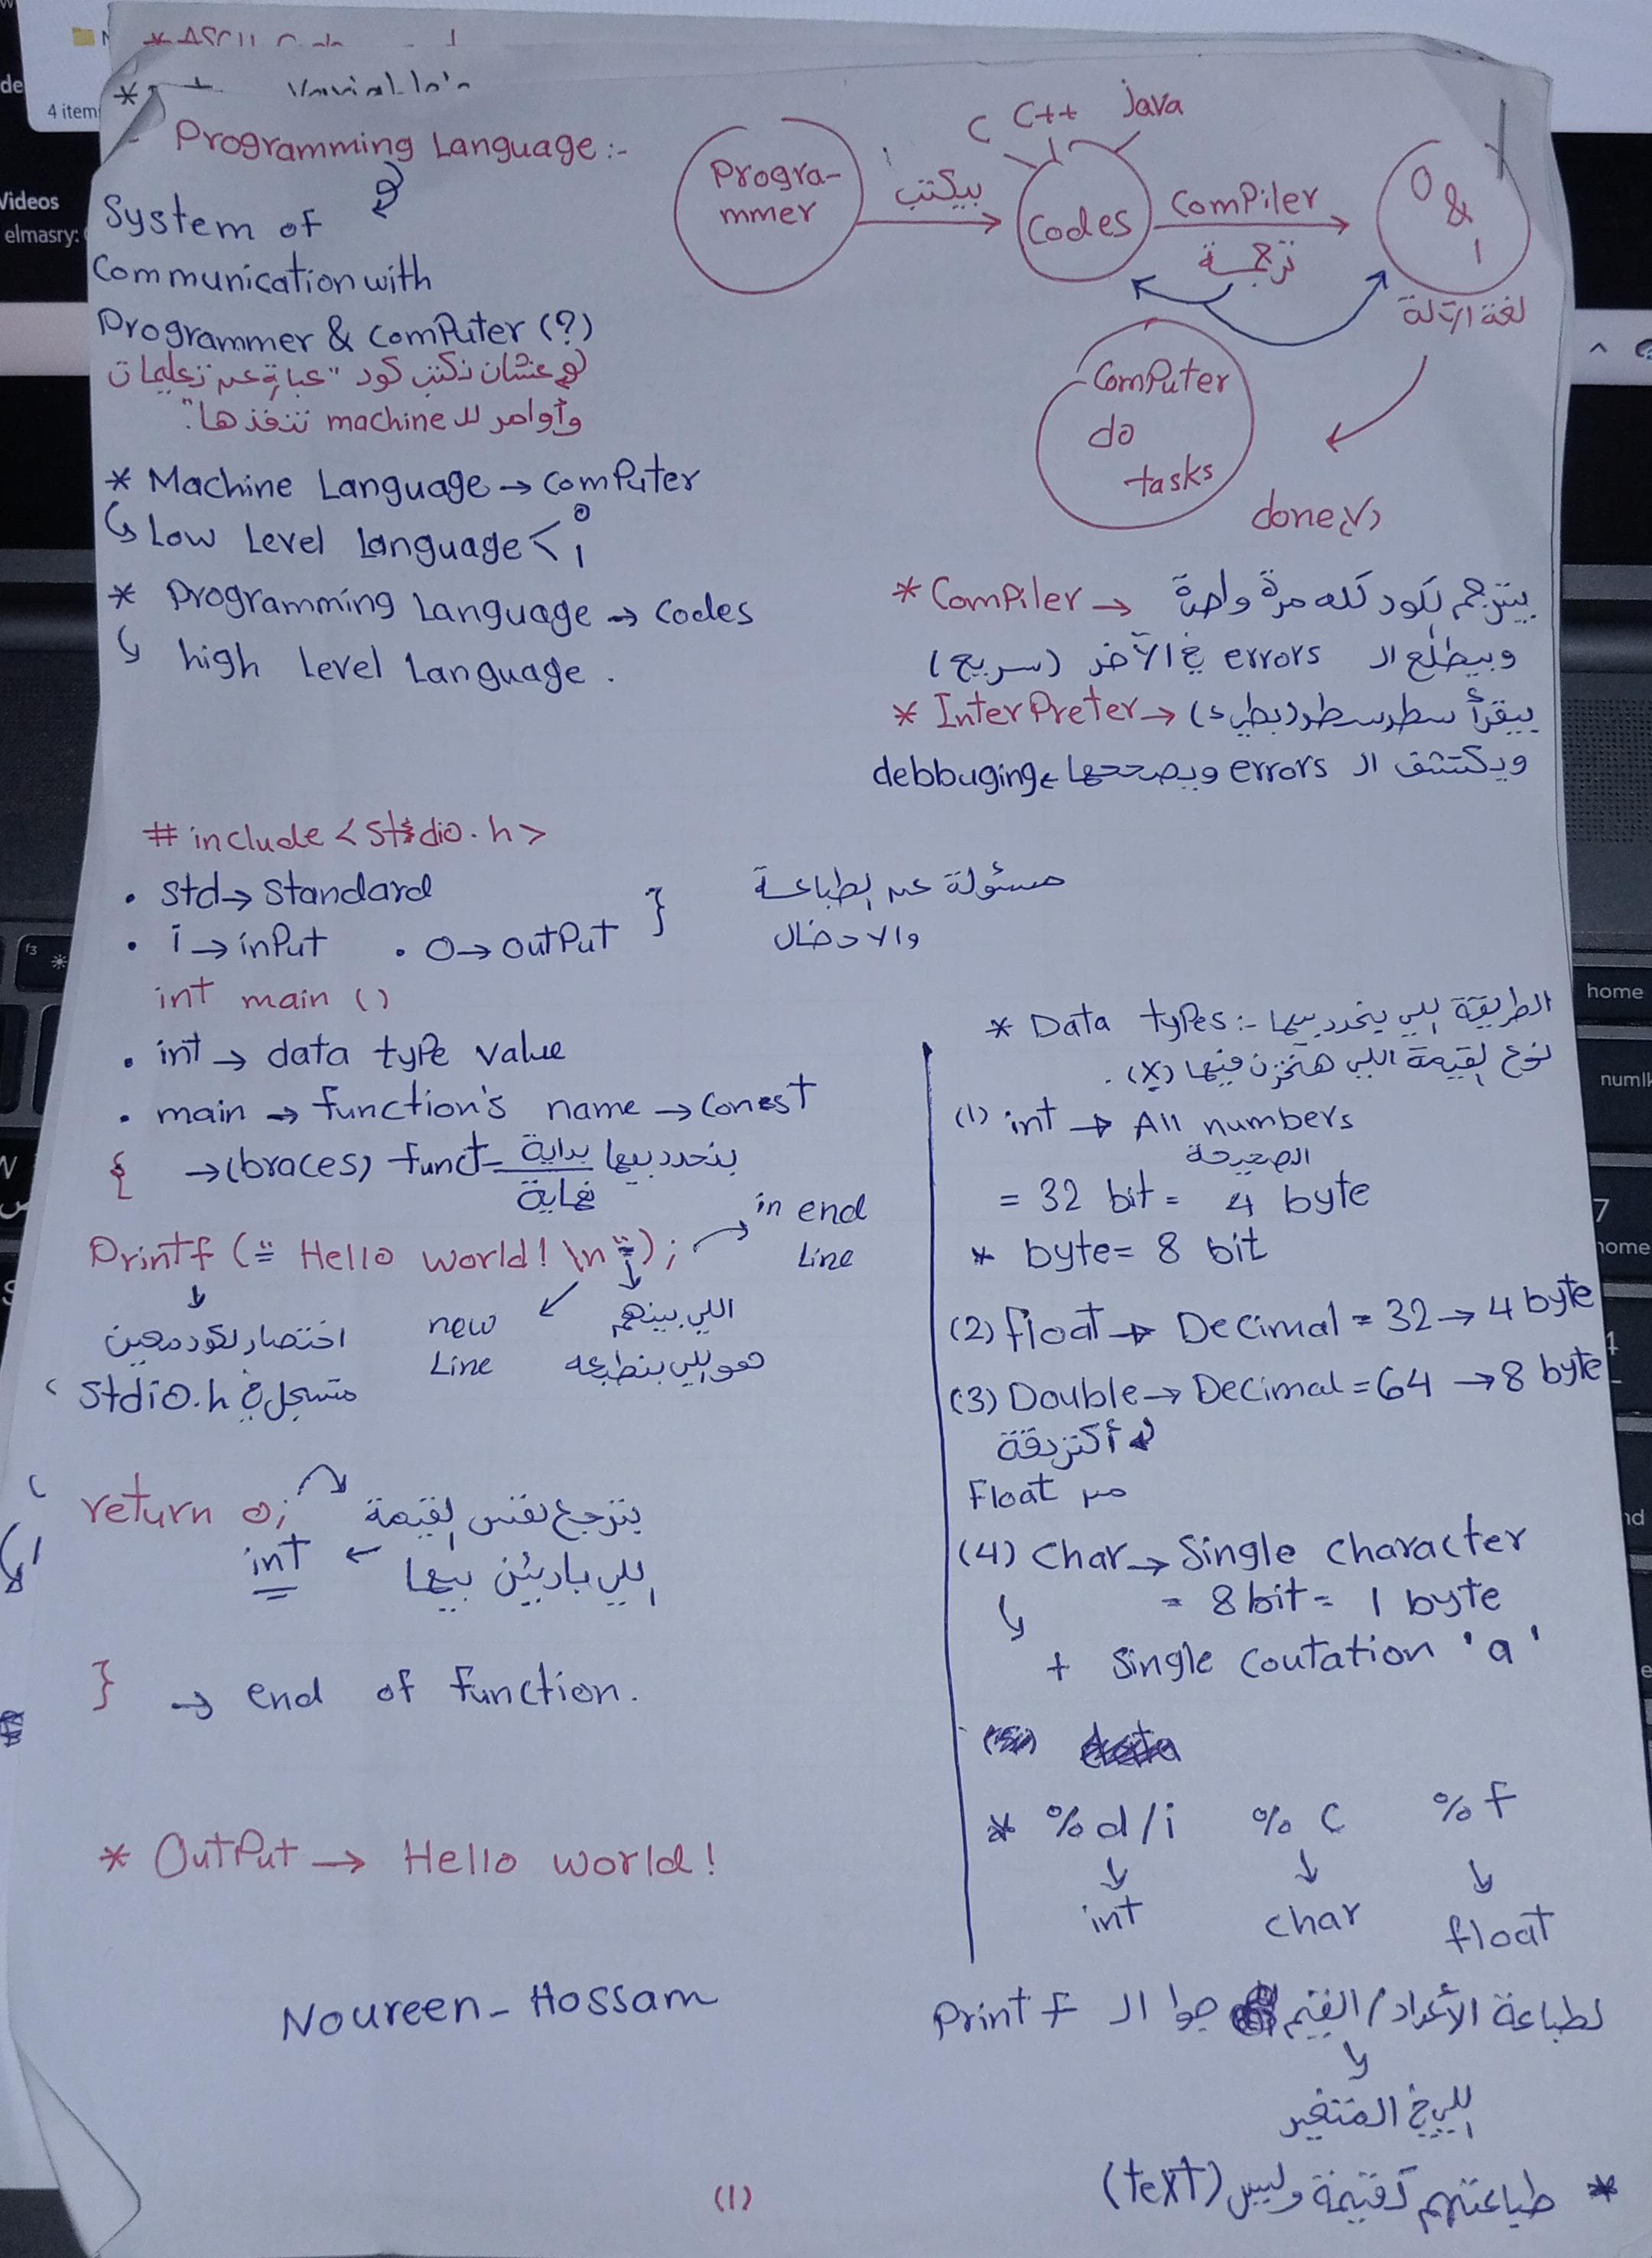 4 item
Videos
elmasry:
Programming Language :-
System of
Communication with
Programmer & computer (?)
عشان نكتب كود "عبارة عن تعليمات
وأوامر للـ machine تنفذها".
* Machine Language → computer
Low Level Language < 0
1
* Programming Language → Codes
high Level Language .
Progra-
mmer
بيكتب
C C++ Java
Codes
Compiler
ترجمة
0
&
1
لغة الآلة
Computer
do
tasks
done(√)
* Compiler → بيترجم الكود كله مرة واحدة
وبيطلع الـ errors في الآخر (سريع)
* Interpreter → بيقرأ سطر سطر (بطيء)
ويكتشف الـ errors ويصححها debbuging
# include <stdio.h>
• std → Standard
• i → input • o → output }
مسئولة عن الطباعة
والادخال
int main ()
• int → data type value
• main → function's name → const
{ → (braces) بنحدد بيها بداية funct
نهاية
Printf (" Hello world! \n ");
in end
Line
اختصار لكود معين
متسجل في stdio.h
new
Line
اللي بينهم
هو اللي بنطبعه
return 0;
بترجع نفس القيمة
اللي بادئين بيها ← int
} → end of function.
* Output → Hello world!
Noureen_Hossam
* Data types :- الطريقة اللي بنحدد بيها
نوع القيمة اللي هتخزن فيها (x) .
(1) int → All numbers
الصحيحة
= 32 bit = 4 byte
* byte = 8 bit
(2) float → Decimal = 32 → 4 byte
(3) Double → Decimal = 64 → 8 byte
أكتر دقة
من Float
(4) Char → Single character
= 8 bit = 1 byte
+ Single coutation 'a'
* %d/i %c %f
int char float
لطباعة الأعداد/القيم جوا الـ Printf
اللي في المتغير
* طباعتهم كقيمة وليس (text)
(1)
home
numl
7
home
f3